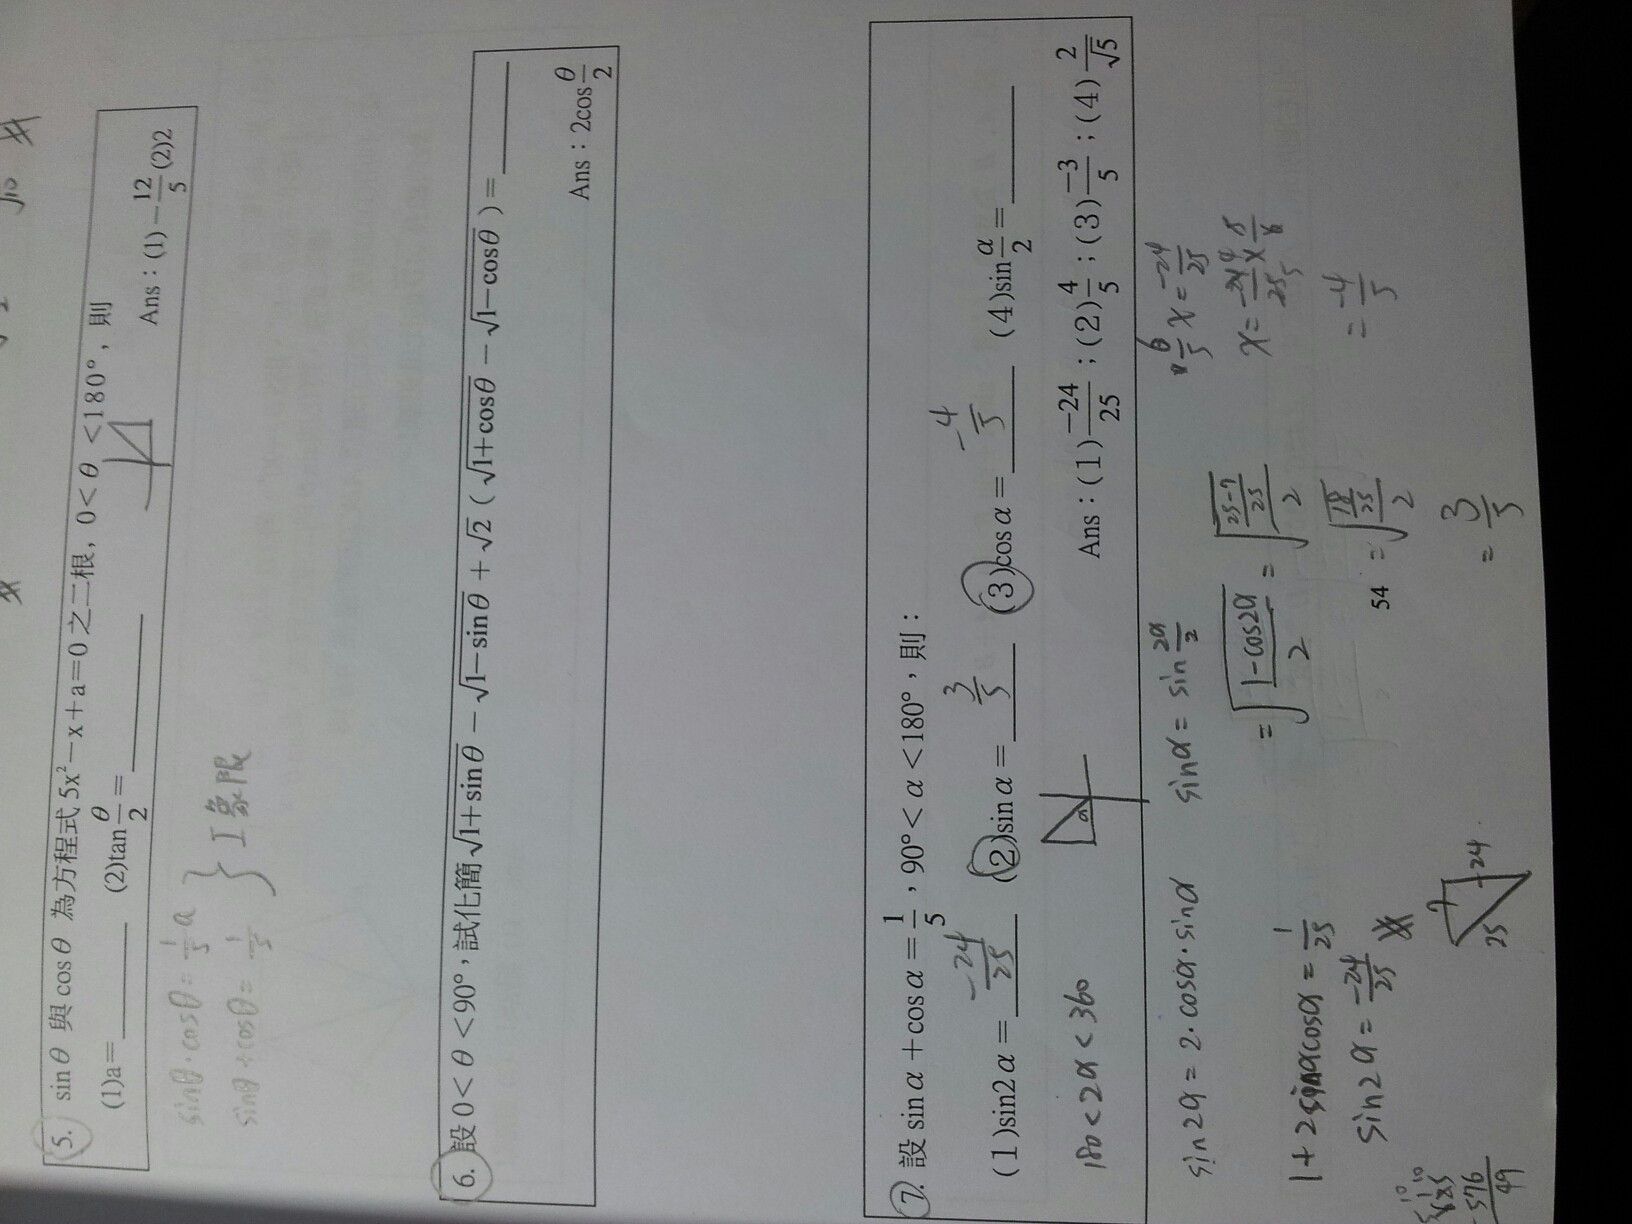 √10
5. sinθ 與 cosθ 為方程式 5x²－x＋a＝0 之二根，0＜θ＜180°，則
(1)a＝______ (2)tan θ/2＝______
Ans：(1)－12/5 (2)2
sinθ·cosθ = 1/5 a
sinθ+cosθ = 1/5
} I象限
6. 設 0＜θ＜90°，試化簡 √(1＋sinθ)－√(1－sinθ)＋√2（√(1＋cosθ)－√(1－cosθ)）＝______
Ans：2cos θ/2
7. 設 sinα＋cosα＝1/5，90°＜α＜180°，則：
(1)sin2α＝ -24/25 (2)sinα＝ 3/5 (3)cosα＝ -4/5 (4)sin α/2＝______
Ans：(1) －24/25；(2) 4/5；(3) －3/5；(4) 2/√5
180<2α<360
α
sin2α = 2·cosα·sinα
1+2sinαcosα = 1/25
sin2α = -24/25
25 7 -24
576
49
sinα = sin 2α/2
= √((1-cos2α)/2) = √(((25-7)/25)/2)
= √((18/25)/2)
= 3/5
6/5 x = -24/25
x = -24/25 × 5/6
= -4/5
54